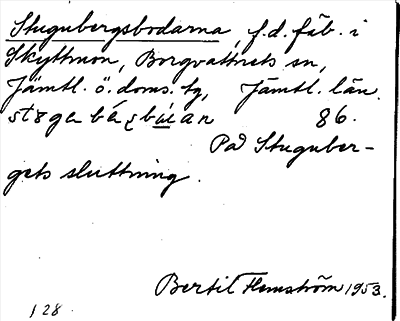 Stugubergsbodarna, f.d. fäb. i
Skyttmon, Borgvattnets sn,
Jämtl. ö. doms. tg, Jämtl. län.
86.
På Stuguber-
gets sluttning.
Bertil Flemström 1953.
128